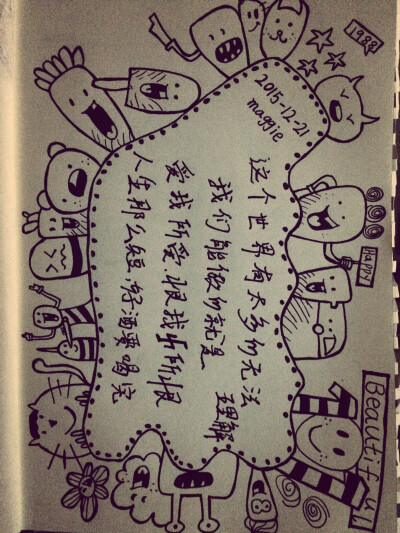 2015-12-21
maggie
这个世界有太多的无法
理解
我们能做的就是
爱我所爱.恨我所恨
人生那么短.好酒要喝完
1988
HAPPY
Beautiful